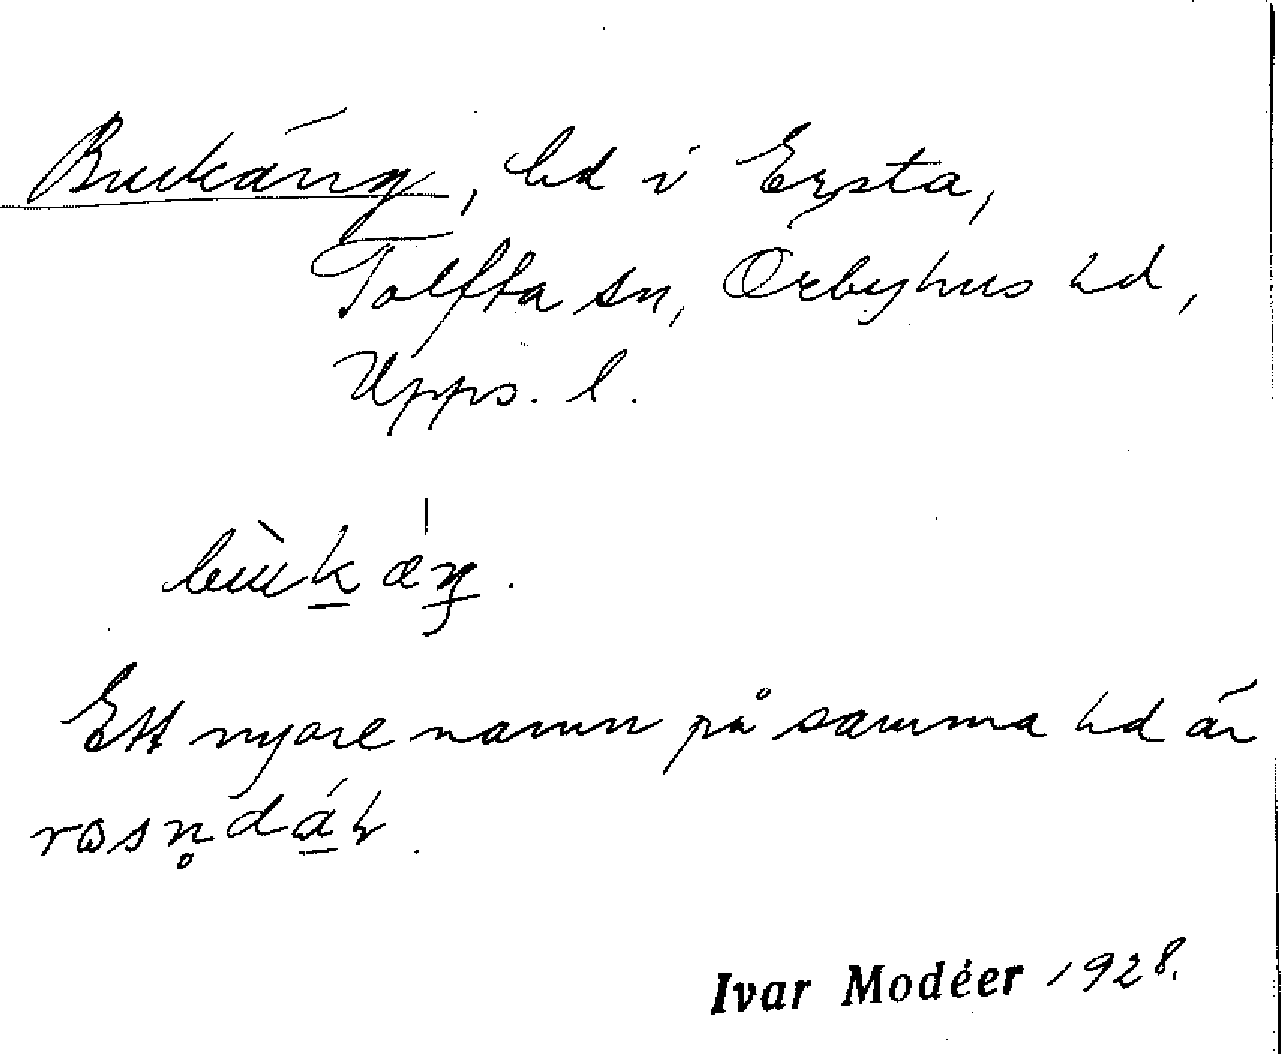 Bukäng, ld i Ersta,
Tolfta sn, Örbyhus hd,
Upps. l.
bùkäŋ.
Ett nyare namn på samma ld är
rosn̥dáɫ.
Ivar Modéer 1928.